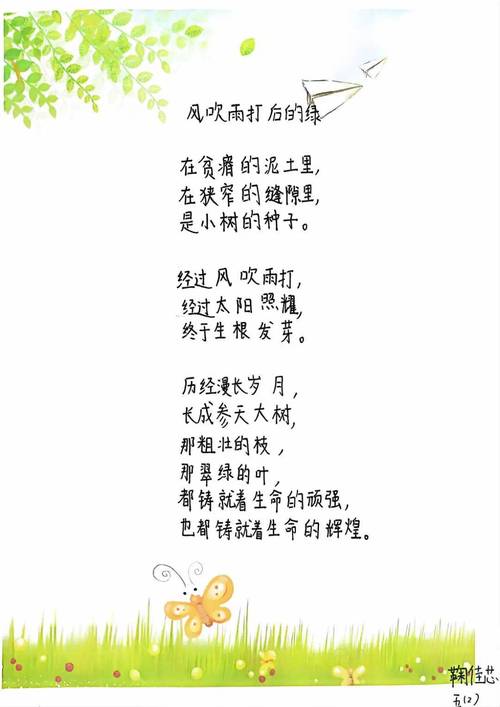 风吹雨打后的绿
在贫瘠的泥土里,
在狭窄的缝隙里,
是小树的种子。
经过风吹雨打,
经过太阳照耀,
终于生根发芽。
历经漫长岁月,
长成参天大树,
那粗壮的枝,
那翠绿的叶,
都铸就着生命的顽强,
也都铸就着生命的辉煌。
鞠佳芯
五(2)